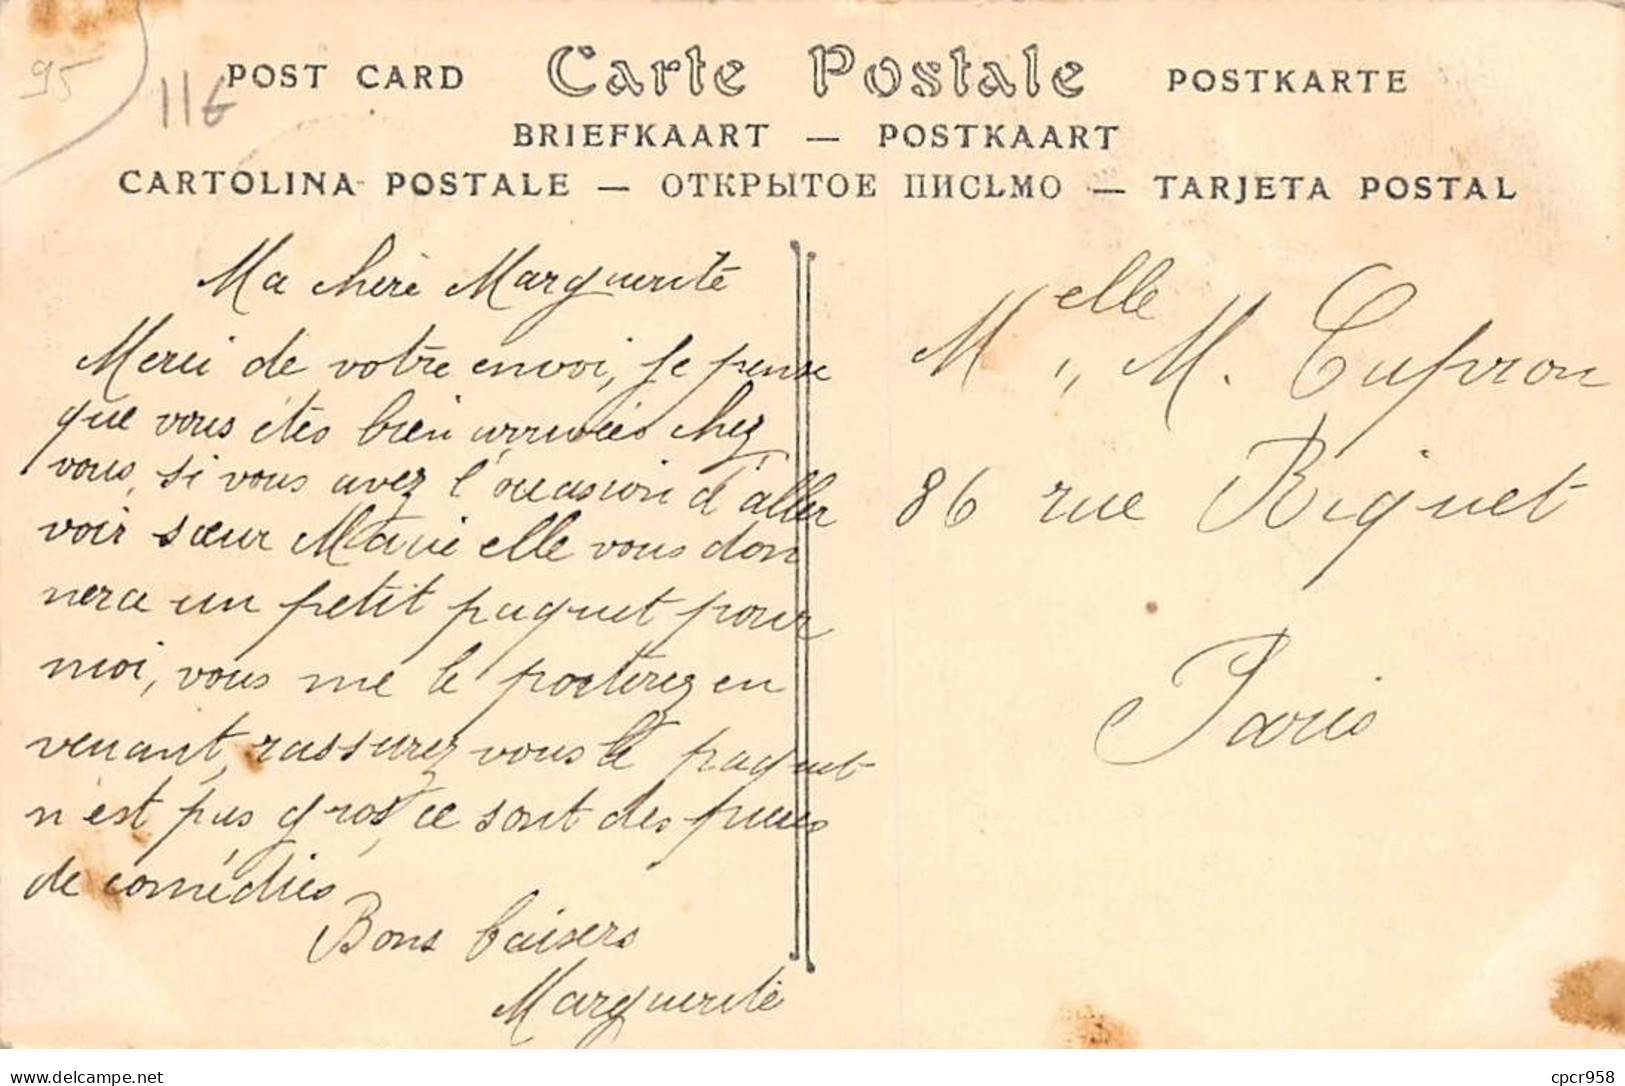 95
11€
POST CARD Carte Postale POSTKARTE
BRIEFKAART — POSTKAART
CARTOLINA POSTALE — ОТКРЫТОЕ ПИСЬМО — TARJETA POSTAL
Ma chère Marguerite
Merci de votre envoi, je pense
que vous êtes bien arrivées chez
vous, si vous avez l'occasion d'aller
voir sœur Marie elle vous don
nera un petit paquet pour
moi, vous me le porterez en
venant, rassurez vous le paquet
n'est pas gros, ce sont des
de comédies
Bons baisers
Marguerite
Melle M. Cupron
86 rue Riquet
Paris
delcampe.net
cpcr958